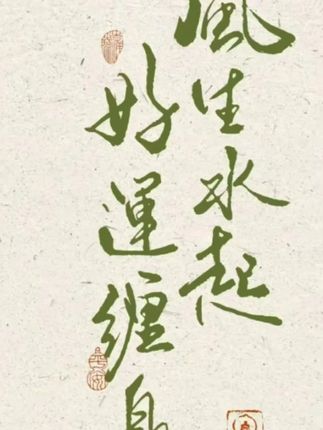 風生水起
好運纏身